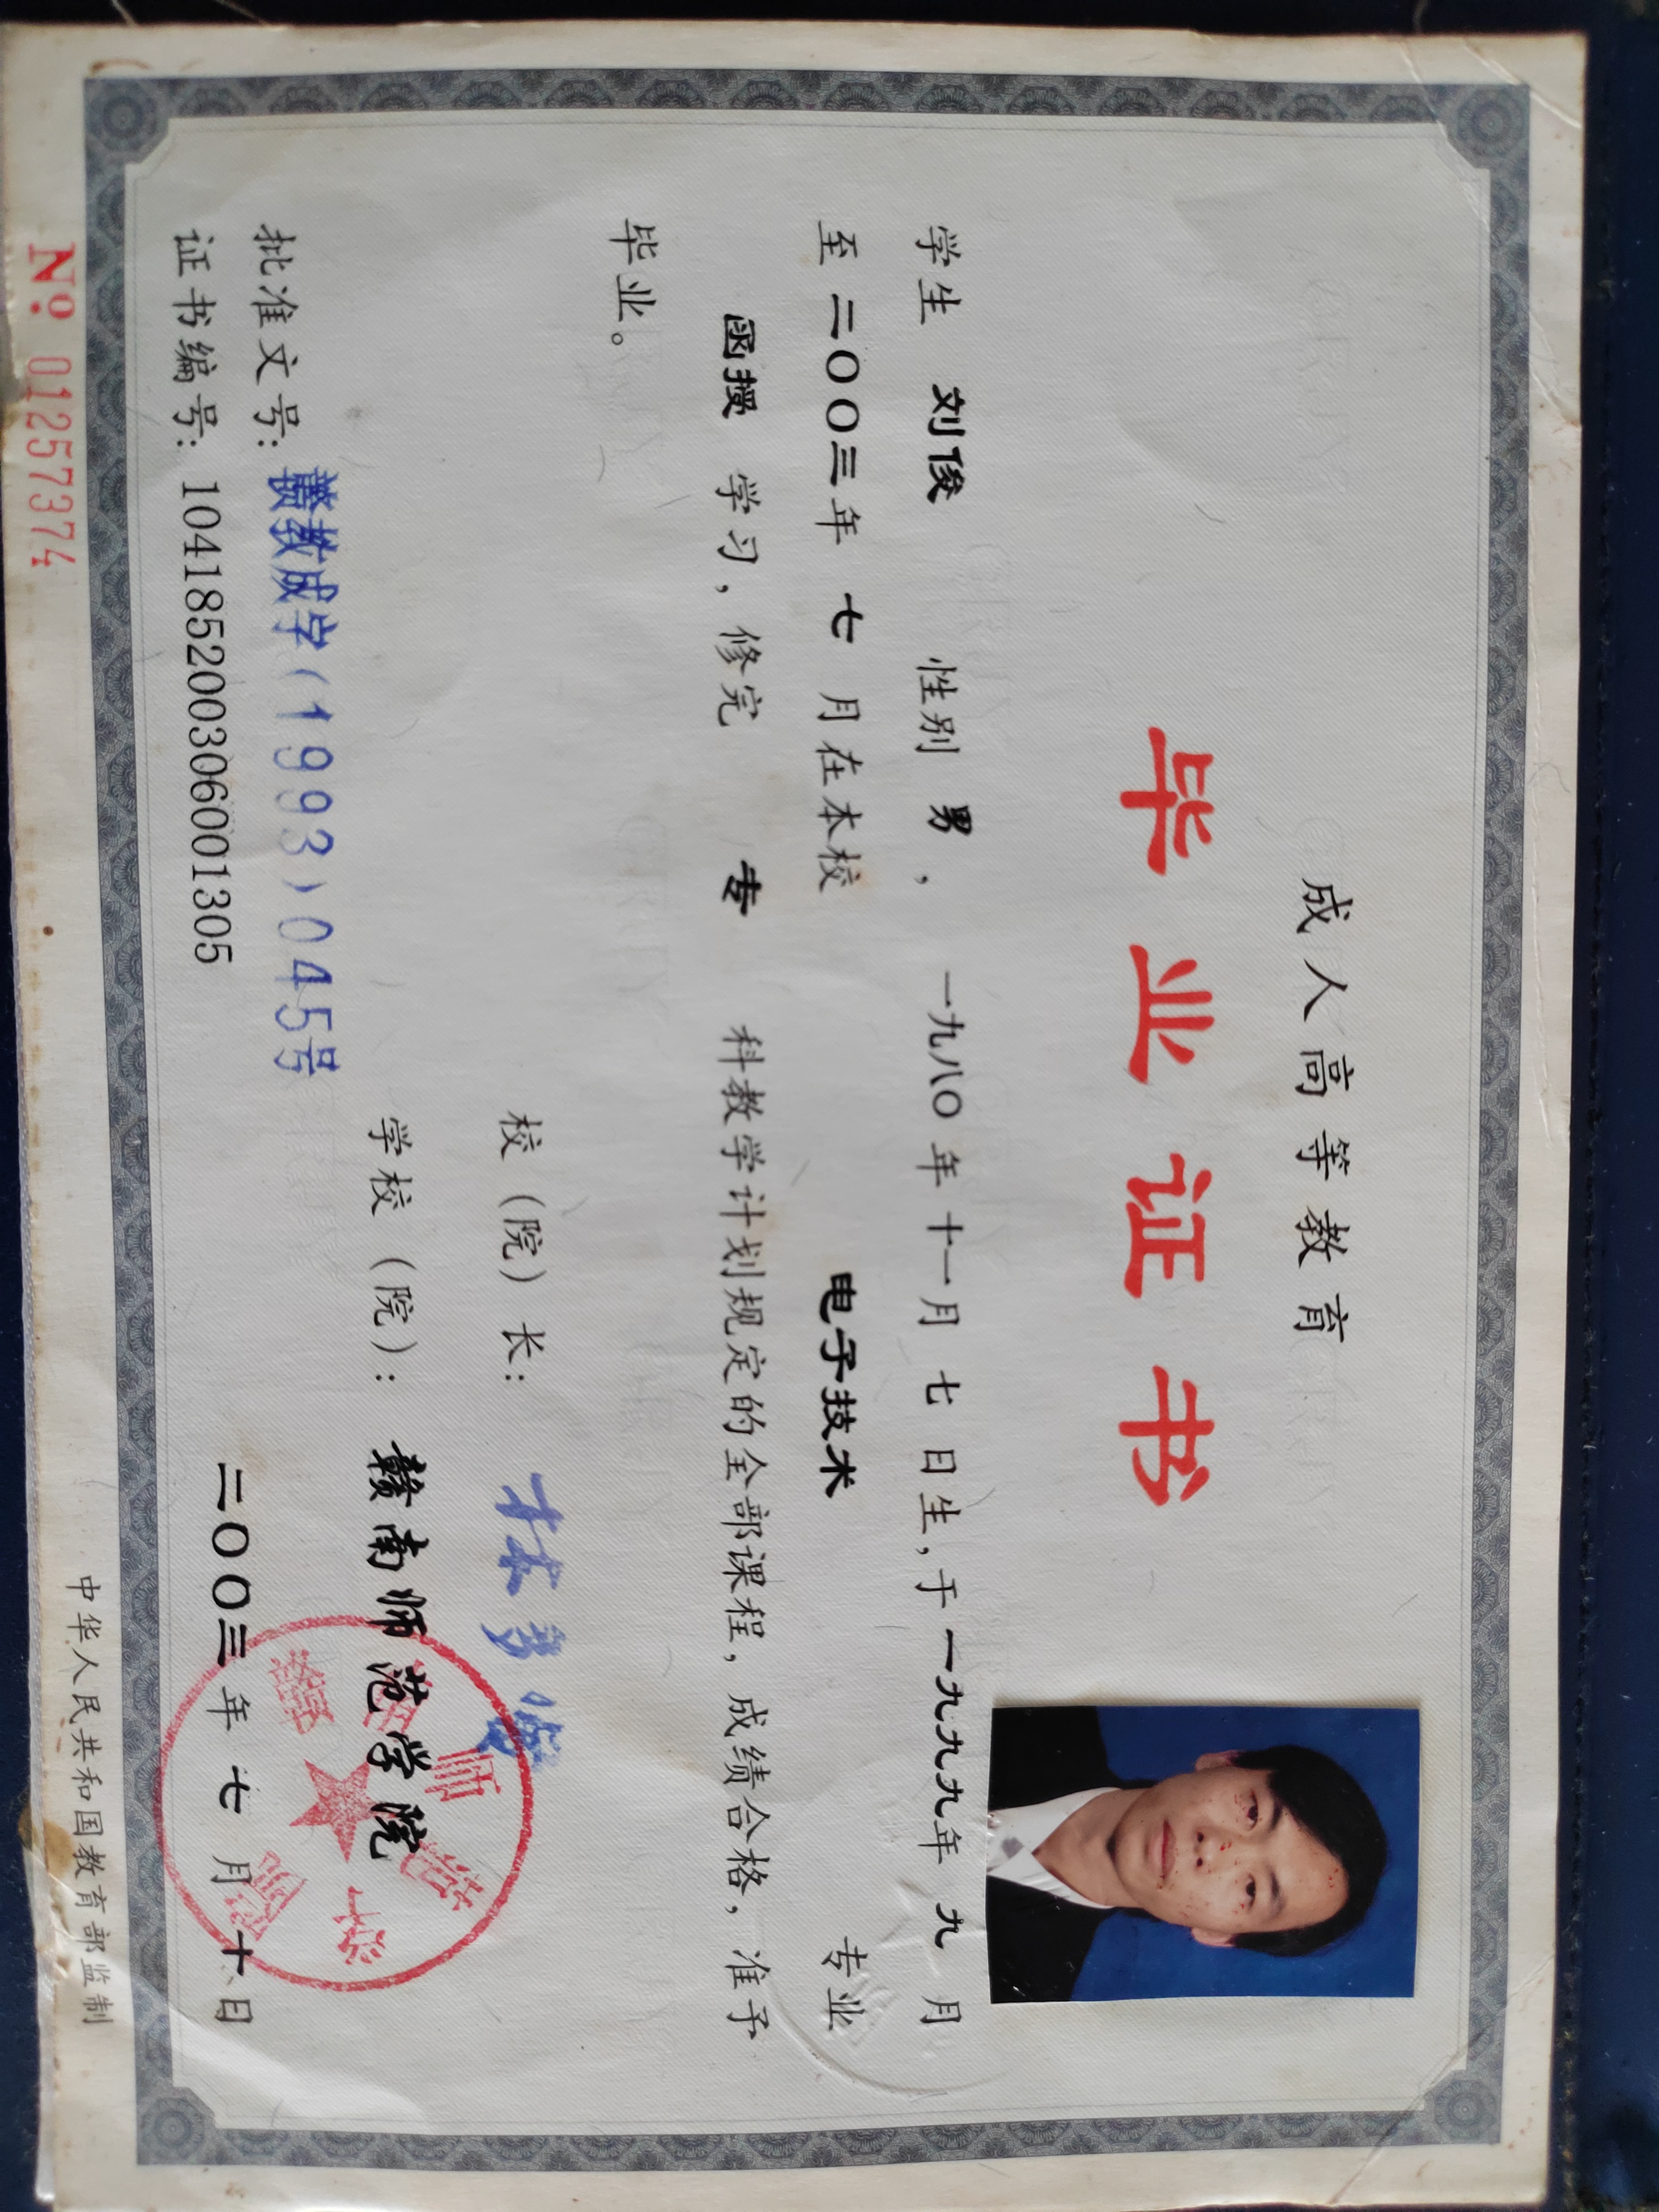 成人高等教育
毕业证书
学生 刘俊 性别 男， 一九八〇年十一月七日生，于一九九九年九月
至二〇〇三年七月在本校 电子技术 专业
函授 学习，修完 专 科教学计划规定的全部课程，成绩合格，准予
毕业。
校（院）长：
学校（院）：赣南师范学院
批准文号：赣教成字(1993)045号
证书编号：104185200306001305
二〇〇三年七月十日
赣南师范学院
中华人民共和国教育部监制
Nº 01257374